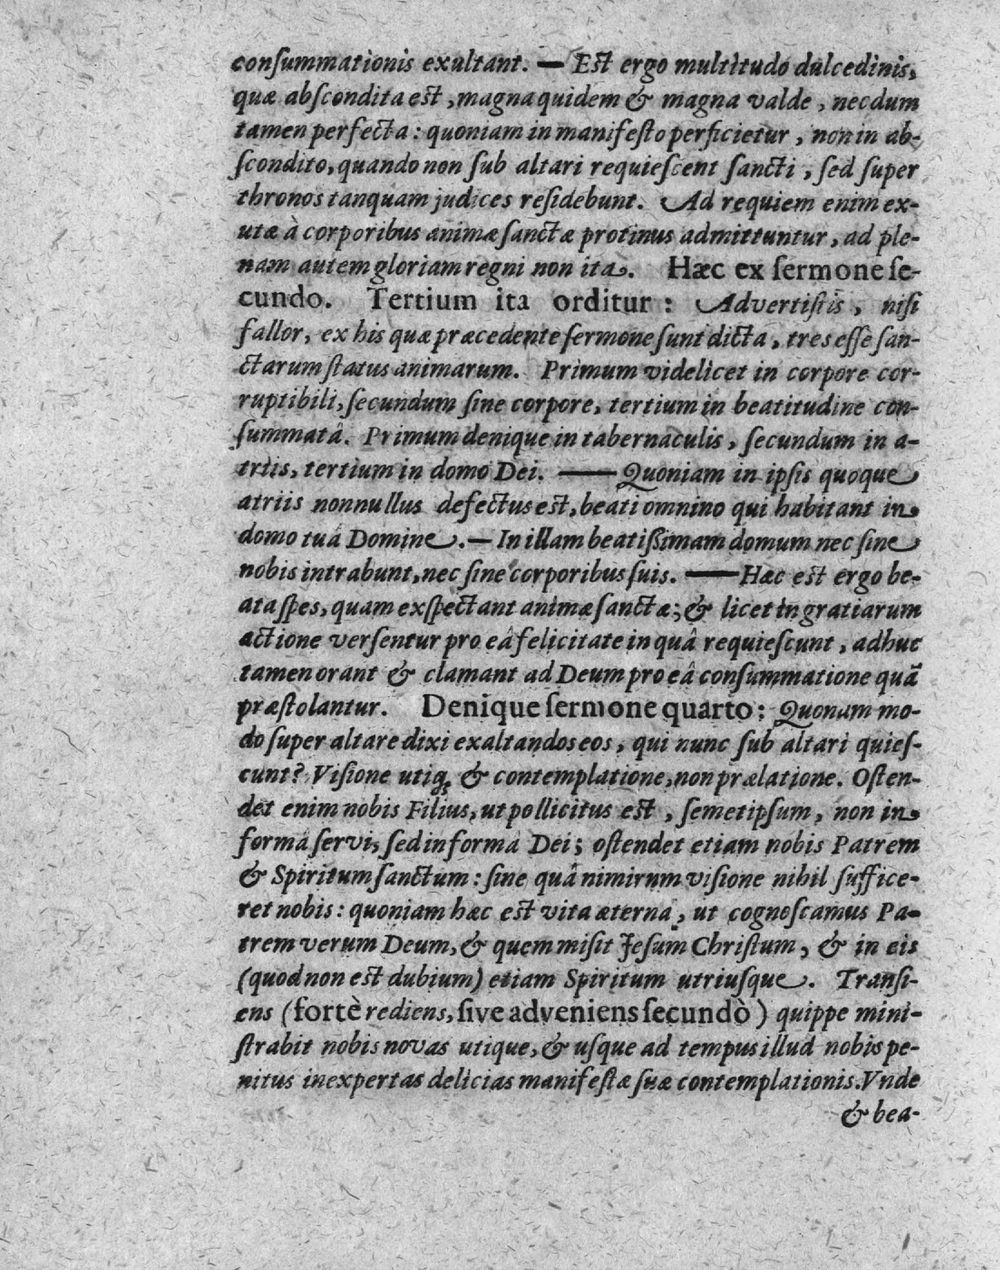 conſummationis exultant. — Eſt ergo multitudo dulcedinis,
quæ abſcondita eſt, magna quidem & magna valde, necdum
tamen perfecta: quoniam in manifeſto perficietur, non in ab-
ſcondito, quando non ſub altari requieſcent ſancti, ſed ſuper
thronos tanquam judices reſidebunt. Ad requiem enim ex-
utæ à corporibus animæ ſanctæ protinus admittuntur, ad ple-
nam autem gloriam regni non ita. Hæc ex ſermone ſe-
cundo. Tertium ita orditur: Advertiſtis, niſi
fallor, ex his quæ præcedente ſermone ſunt dicta, tres eſſe ſan-
ctarum ſtatus animarum. Primum videlicet in corpore cor-
ruptibili, ſecundum ſine corpore, tertium in beatitudine con-
ſummatâ. Primum denique in tabernaculis, ſecundum in a-
triis, tertium in domo Dei. — Quoniam in ipſis quoque
atriis nonnullus defectus eſt, beati omnino qui habitant in
domo tuâ Domine. — In illam beatiſſimam domum nec ſine
nobis intrabunt, nec ſine corporibus ſuis. — Hæc eſt ergo be-
ata ſpes, quam exſpectant animæ ſanctæ; & licet in gratiarum
actione verſentur pro eâ felicitate in quâ requieſcunt, adhuc
tamen orant & clamant ad Deum pro eâ conſummatione quā
præſtolantur. Denique ſermone quarto: Quonam mo-
do ſuper altare dixi exaltandos eos, qui nunc ſub altari quieſ-
cunt? Viſione utiq; & contemplatione, non prælatione. Oſten-
det enim nobis Filius, ut pollicitus eſt, ſemetipſum, non in
formâ ſervi, ſed in formâ Dei; oſtendet etiam nobis Patrem
& Spiritum ſanctum: ſine quâ nimirum viſione nihil ſuffice-
ret nobis: quoniam hæc eſt vita æterna, ut cognoſcamus Pa-
trem verum Deum, & quem miſit Jeſum Chriſtum, & in eis
(quod non eſt dubium) etiam Spiritum utriuſque. Tranſi-
ens (fortè rediens, ſive adveniens ſecundò) quippe mini-
ſtrabit nobis novas utique, & uſque ad tempus illud nobis pe-
nitus inexpertas delicias manifeſtæ ſuæ contemplationis. Vnde
& bea-